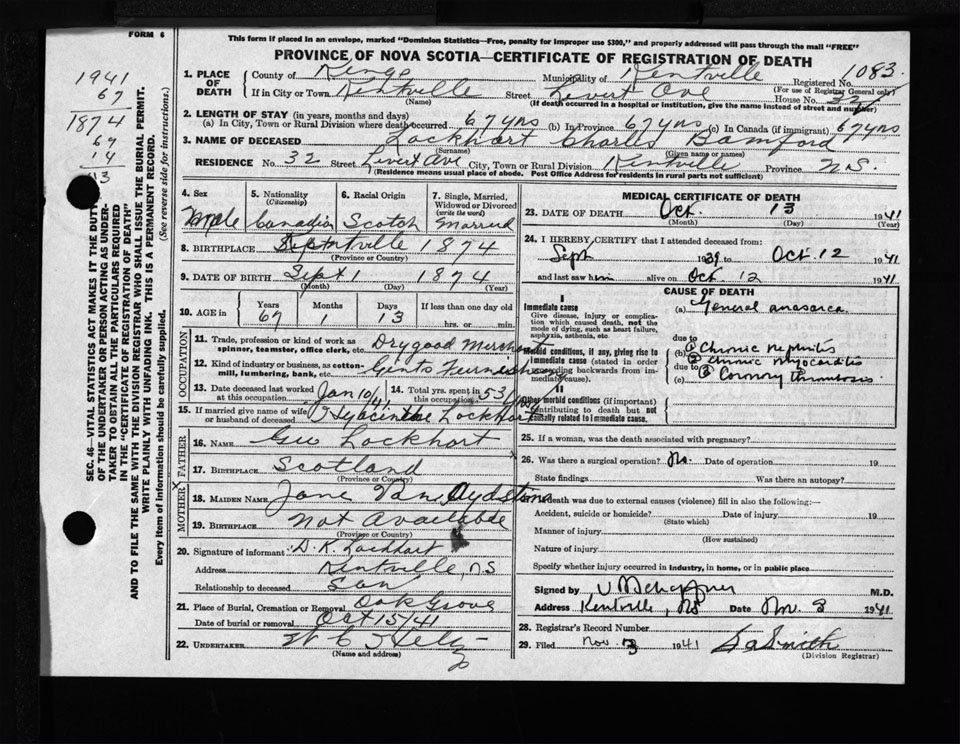 FORM 6
This form if placed in an envelope, marked "Dominion Statistics—Free, penalty for improper use $300," and properly addressed will pass through the mail "FREE"
PROVINCE OF NOVA SCOTIA—CERTIFICATE OF REGISTRATION OF DEATH
1941
67
1874
69
14
13
SEC. 46—VITAL STATISTICS ACT MAKES IT THE DUTY
OF THE UNDERTAKER OR PERSON ACTING AS UNDER-
TAKER TO OBTAIN ALL THE PARTICULARS REQUIRED
IN THE "CERTIFICATE OF REGISTRATION OF DEATH"
AND TO FILE THE SAME WITH THE DIVISION REGISTRAR WHO SHALL ISSUE THE BURIAL PERMIT.
WRITE PLAINLY WITH UNFADING INK. THIS IS A PERMANENT RECORD.
Every item of information should be carefully supplied. (See reverse side for instructions.)
1. PLACE OF DEATH
County of Kings Municipality of Kentville Registered No. 1083
(For use of Registrar General only)
If in City or Town Kentville Street Levert Ave House No. 32
(Name) (If death occurred in a hospital or institution, give the name instead of street and number)
2. LENGTH OF STAY (in years, months and days)
(a) In City, Town or Rural Division where death occurred 67 yrs (b) In Province 67 yrs (c) In Canada (if immigrant) 67 yrs
3. NAME OF DECEASED Lockhart Charles Bamford
(Surname) (Given name or names)
RESIDENCE No. 32 Street Levert Ave City, Town or Rural Division Kentville Province N.S.
(Residence means usual place of abode. Post Office Address for residents in rural parts not sufficient)
4. Sex Male
5. Nationality (Citizenship) Canadian
6. Racial Origin Scotch
7. Single, Married, Widowed or Divorced (write the word) Married
8. BIRTHPLACE 1874
(Province or Country)
9. DATE OF BIRTH Sept 1 1874
(Month) (Day) (Year)
10. AGE in Years 67 Months 1 Days 13 If less than one day old
hrs. or min.
OCCUPATION
11. Trade, profession or kind of work as spinner, teamster, office clerk, etc. Drygood Merchant
12. Kind of industry or business, as cotton-mill, lumbering, bank, etc. Gents Furnishing
13. Date deceased last worked at this occupation Jan 10/41 14. Total yrs. spent in this occupation 53 yrs
15. If married give name of wife or husband of deceased Hyacinthe Lockhart
FATHER
16. NAME Geo Lockhart
17. BIRTHPLACE Scotland
(Province or Country)
MOTHER
18. MAIDEN NAME Jane Van
19. BIRTHPLACE Not Available
(Province or Country)
20. Signature of informant D. K. Lockhart
Address Kentville, N.S
Relationship to deceased Son
21. Place of Burial, Cremation or Removal Oak Grove
Date of burial or removal Oct 15/41
22. UNDERTAKER W C
(Name and address)
MEDICAL CERTIFICATE OF DEATH
23. DATE OF DEATH Oct. 13 1941
(Month) (Day) (Year)
24. I HEREBY CERTIFY that I attended deceased from:
Sept 1939 to Oct 12 1941
and last saw him alive on Oct. 12 1941
CAUSE OF DEATH
I
Immediate cause
Give disease, injury or complication which caused death, not the mode of dying, such as heart failure, asphyxia, asthenia, etc.
(a) General anasarca
due to
Morbid conditions, if any, giving rise to immediate cause (stated in order proceeding backwards from immediate cause).
(b) 1 Chronic Nephritis
due to 2 Chronic myocarditis
(c) 3 Coronary thrombosis
II
Other morbid conditions (if important) contributing to death but not causally related to immediate cause.
25. If a woman, was the death associated with pregnancy?
26. Was there a surgical operation? No. Date of operation 19
State findings Was there an autopsy?
death was due to external causes (violence) fill in also the following:—
Accident, suicide or homicide? Date of injury 19
(State which)
Manner of injury
(How sustained)
Nature of injury
Specify whether injury occurred in industry, in home, or in public place
Signed by M.D.
Address Kentville, NS Date Nov. 3 1941
28. Registrar's Record Number
29. Filed Nov 3 1941 Smith
(Division Registrar)